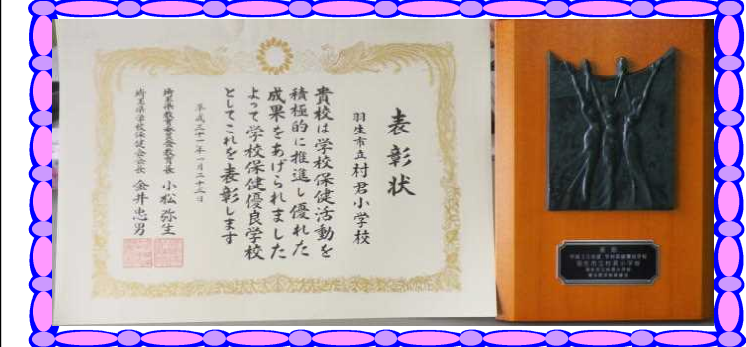 表彰状
羽生市立村君小学校
貴校は学校保健活動を
積極的に推進し優れた
成果をあげられました
よって学校保健優良学校
としてこれを表彰します
平成三十一年一月二十二日
埼玉県教育委員会教育長 小松弥生
埼玉県学校保健会会長 金井忠男
表彰
羽生市立村君小学校